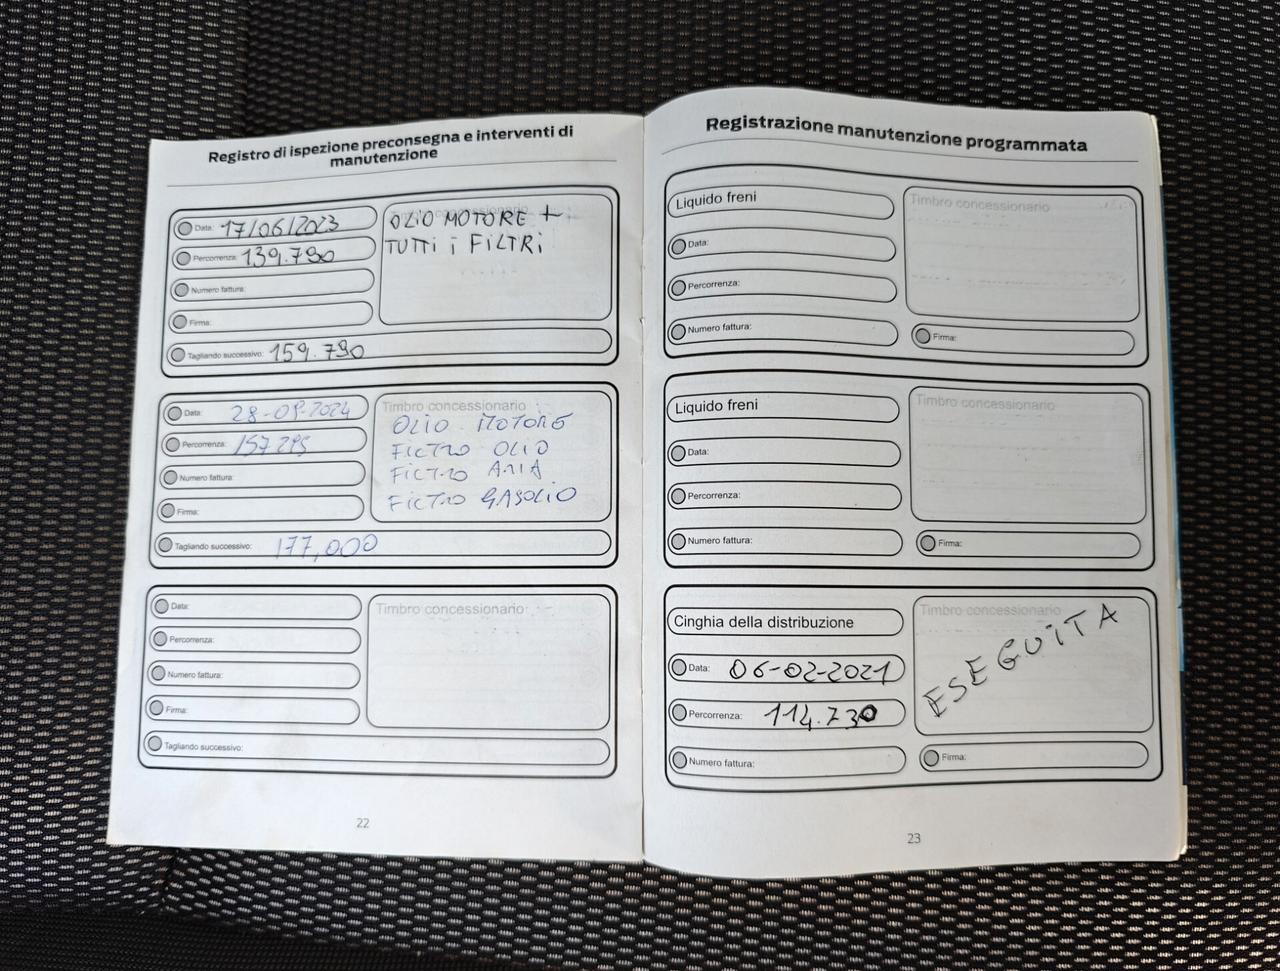 Registro di ispezione preconsegna e interventi di
manutenzione
Data: 17/06/2023
Percorrenza: 139.790
Numero fattura:
Firma:
OLIO MOTORE +
TUTTI i FILTRI
Tagliando successivo: 159.790
Data: 28-09-2024
Percorrenza: 157295
Numero fattura:
Firma:
Timbro concessionario
OLIO MOTORE
FILTRO OLIO
FILTRO ARIA
FILTRO GASOLIO
Tagliando successivo: 177,000
Data:
Percorrenza:
Numero fattura:
Firma:
Timbro concessionario
Tagliando successivo:
22
Registrazione manutenzione programmata
Liquido freni
Data:
Percorrenza:
Numero fattura:
Timbro concessionario
Firma:
Liquido freni
Data:
Percorrenza:
Numero fattura:
Timbro concessionario
Firma:
Cinghia della distribuzione
Data: 06-02-2021
Percorrenza: 114.730
Numero fattura:
Timbro concessionario
ESEGUITA
Firma:
23